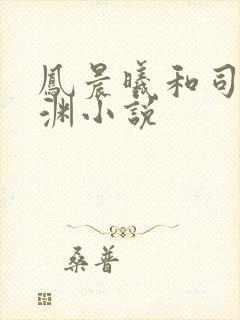 鳳晨曦和司
渊小説
桑普